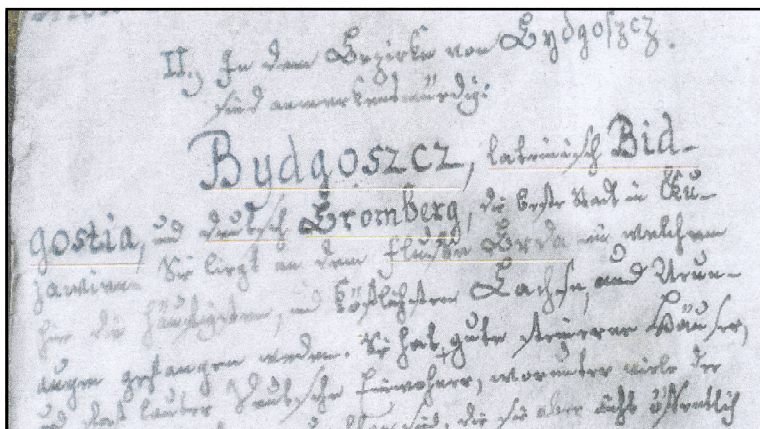 II., In dem Bezirke von Bydgoszcz.
sind anmerkenswürdig:
Bydgoszcz, lateinisch Bid-
gostia, und deutsch Bromberg, die beste Stadt in Cu-
javien. Sie liegt an dem Flusse Brda in welchem
hier die häufigsten, und köstlichsten Lachse, und Neun-
augen gefangen werden. Sie hat gute steinerne Häuser,
und fast lauter Deutsche Einwohner, worunter viele der
sind, die sie aber nicht öffentlich